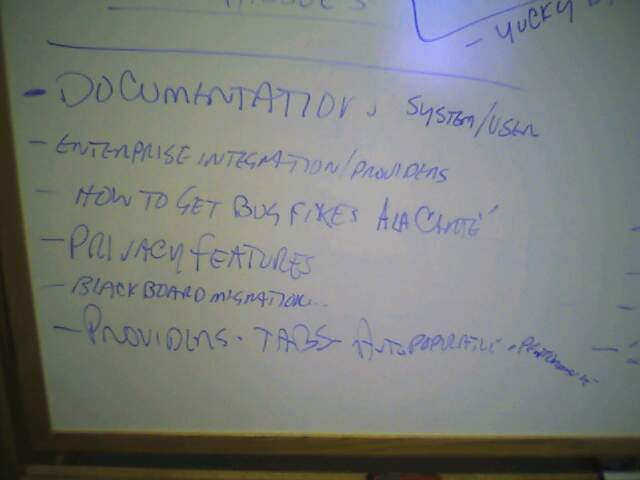 - YUCKY
- DOCUMENTATION, SYSTEM/USER
- ENTERPRISE INTEGRATION/PROVIDERS
- HOW TO GET BUG FIXES ALA CARTE'
- PRIVACY FEATURES
- BLACKBOARD MIGRATION...
- PROVIDERS - TABS - AUTOPOPULATE -